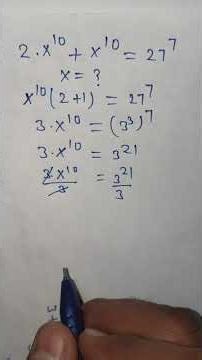 2·x¹⁰ + x¹⁰ = 27⁷
x = ?
x¹⁰(2+1) = 27⁷
3·x¹⁰ = (3³)⁷
3·x¹⁰ = 3²¹
3x¹⁰/3 = 3²¹/3